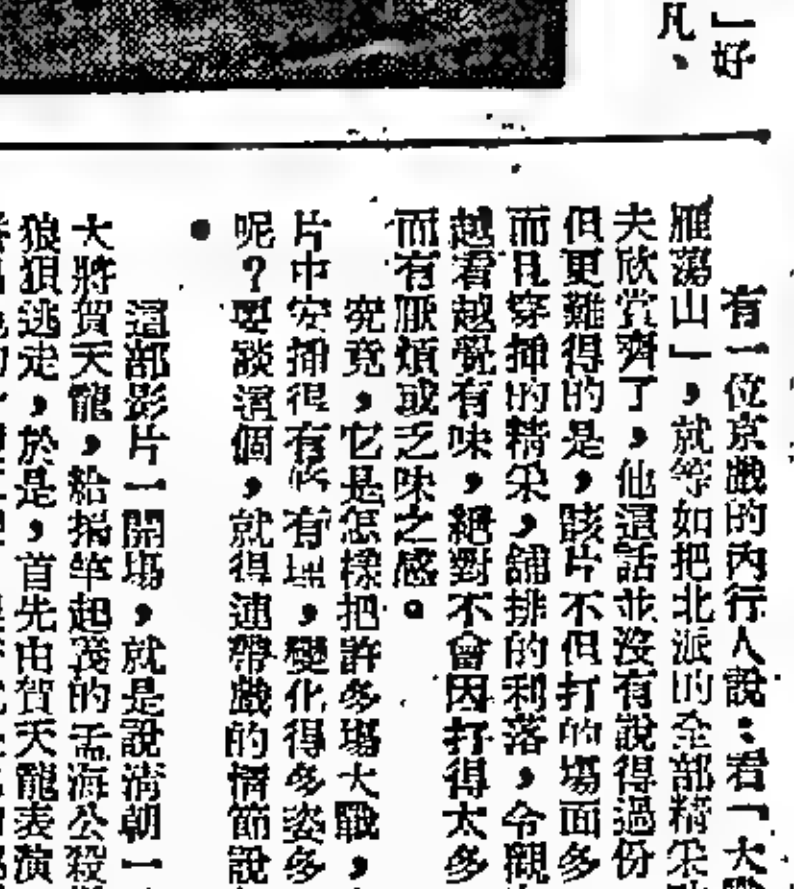 」好
凡、
有一位京戲的內行人說：看「大戰
雁蕩山」，就等如把北派的全部精采
夫欣賞齊了，他這話並沒有說得過份
但更難得的是，該片不但打的場面多
而且穿插的精采，舖排的利落，令觀
越看越覺有味，絕對不會因打得太多
而有厭煩或乏味之感。
究竟，它是怎樣把許多場大戰，
片中安插得有條有理，變化得多姿多
呢？要談這個，就得連帶戲的情節說
這部影片一開場，就是說清朝一
大將賀天龍，給揭竿起義的孟海公殺
狼狽逃走，於是，首先由賀天龍表演